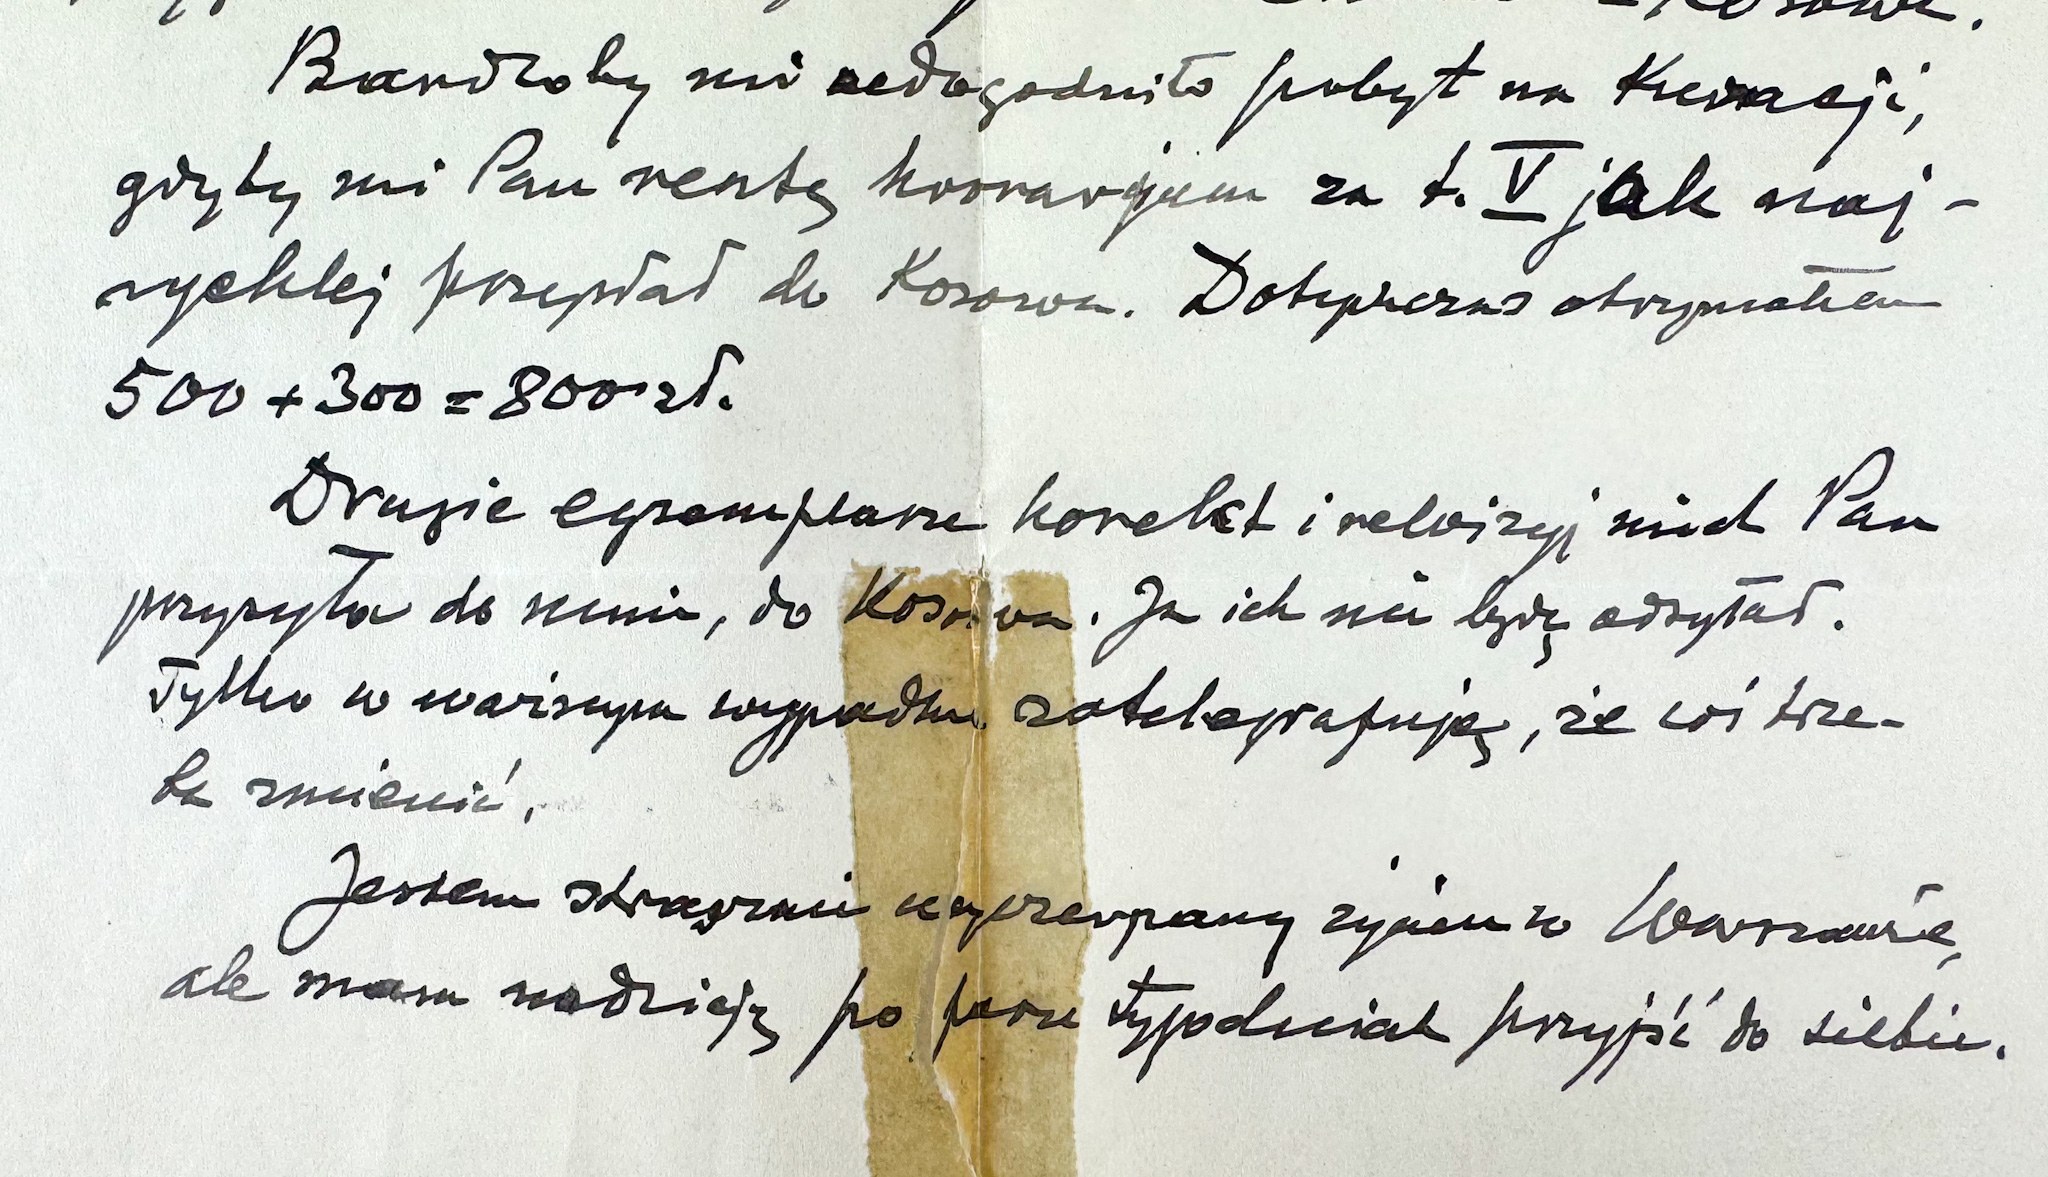 Kosowe.
Bardzoby mi udogodniło pobyt na Kuracji,
gdyby mi Pan resztę honorarjum za t. V jak naj-
rychlej przesłał do Kosowa. Dotychczas otrzymałem
500 + 300 = 800 zł.
Drugie egzemplarze korekt i rewizyj niech Pan
przysyła do mnie, do Kosowa. Ja ich nie będę odsyłał.
Tylko w ważnym wypadku zatelegrafuję, że coś trze-
ba zmienić.
Jestem strasznie wyczerpany życiem w Warszawie,
ale mam nadzieję po paru tygodniach przyjść do siebie.